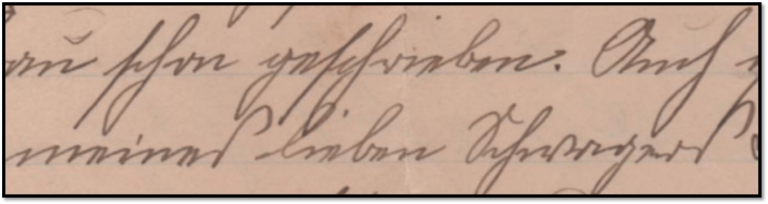 schon geschrieben. Auch
meines lieben Schwagers